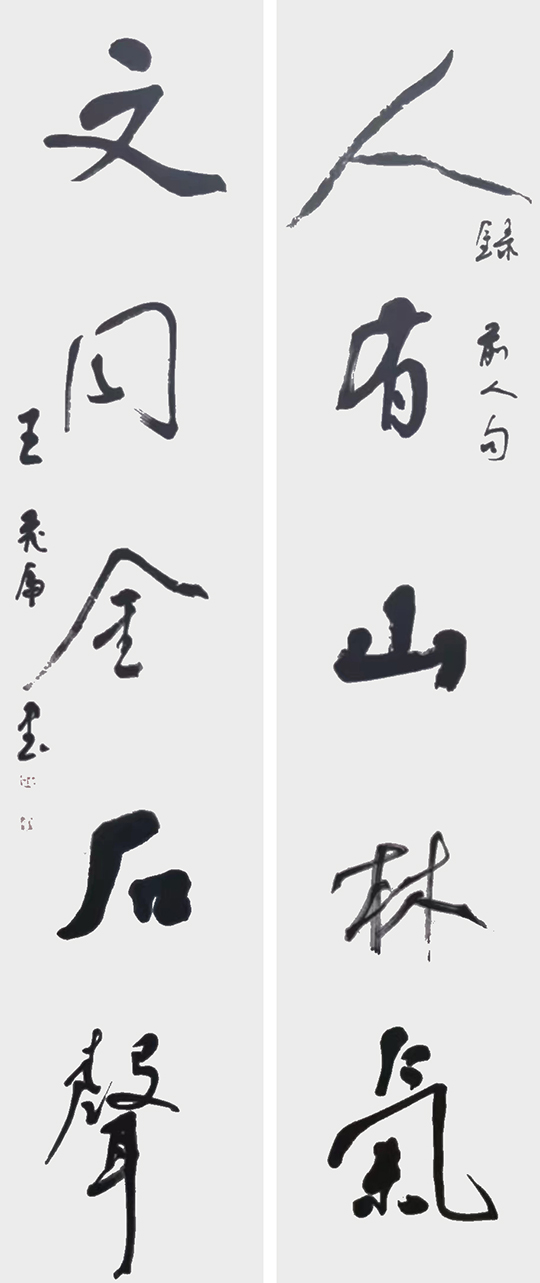 錄前人句
人有山林氣
文同金石聲
王飛虎書